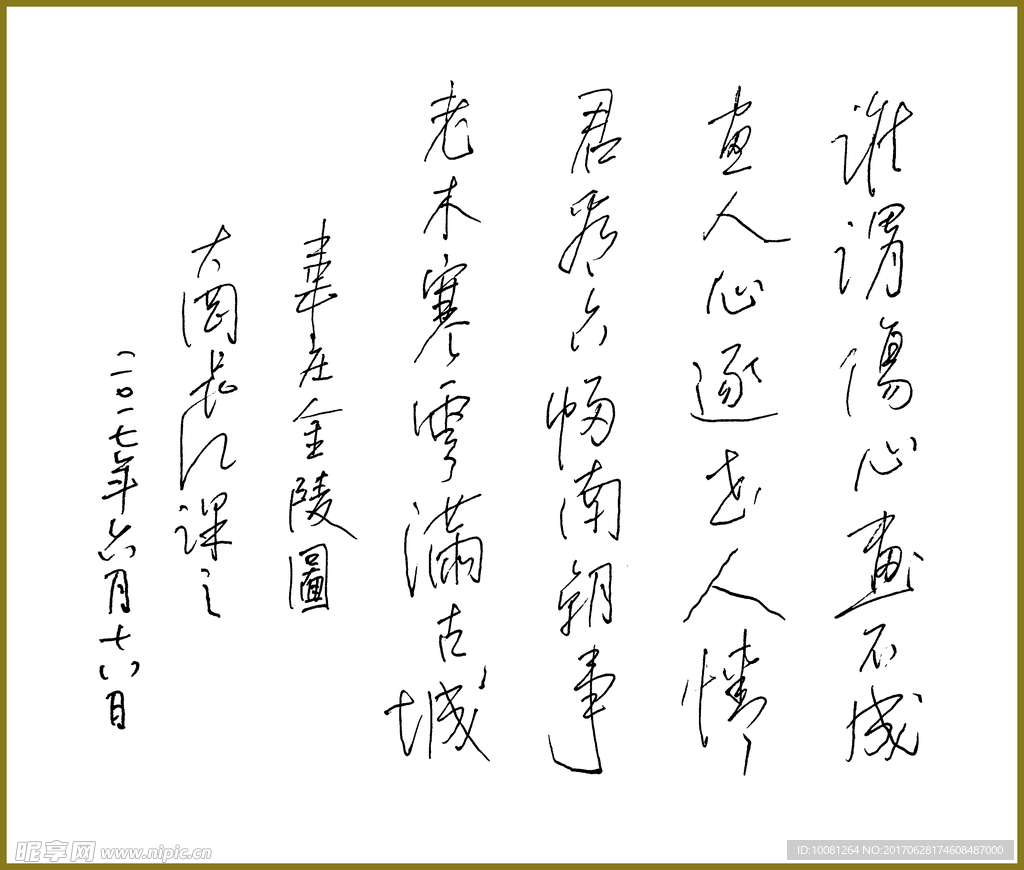 谁谓傷心畫不成
畫人心逐世人情
君看六幅南朝事
老木寒雲滿古城
韋庄金陵圖
大岡長江课之
二〇一七年六月十八日
昵享网 www.nipic.cn
ID:10081264 NO:20170628174608487000